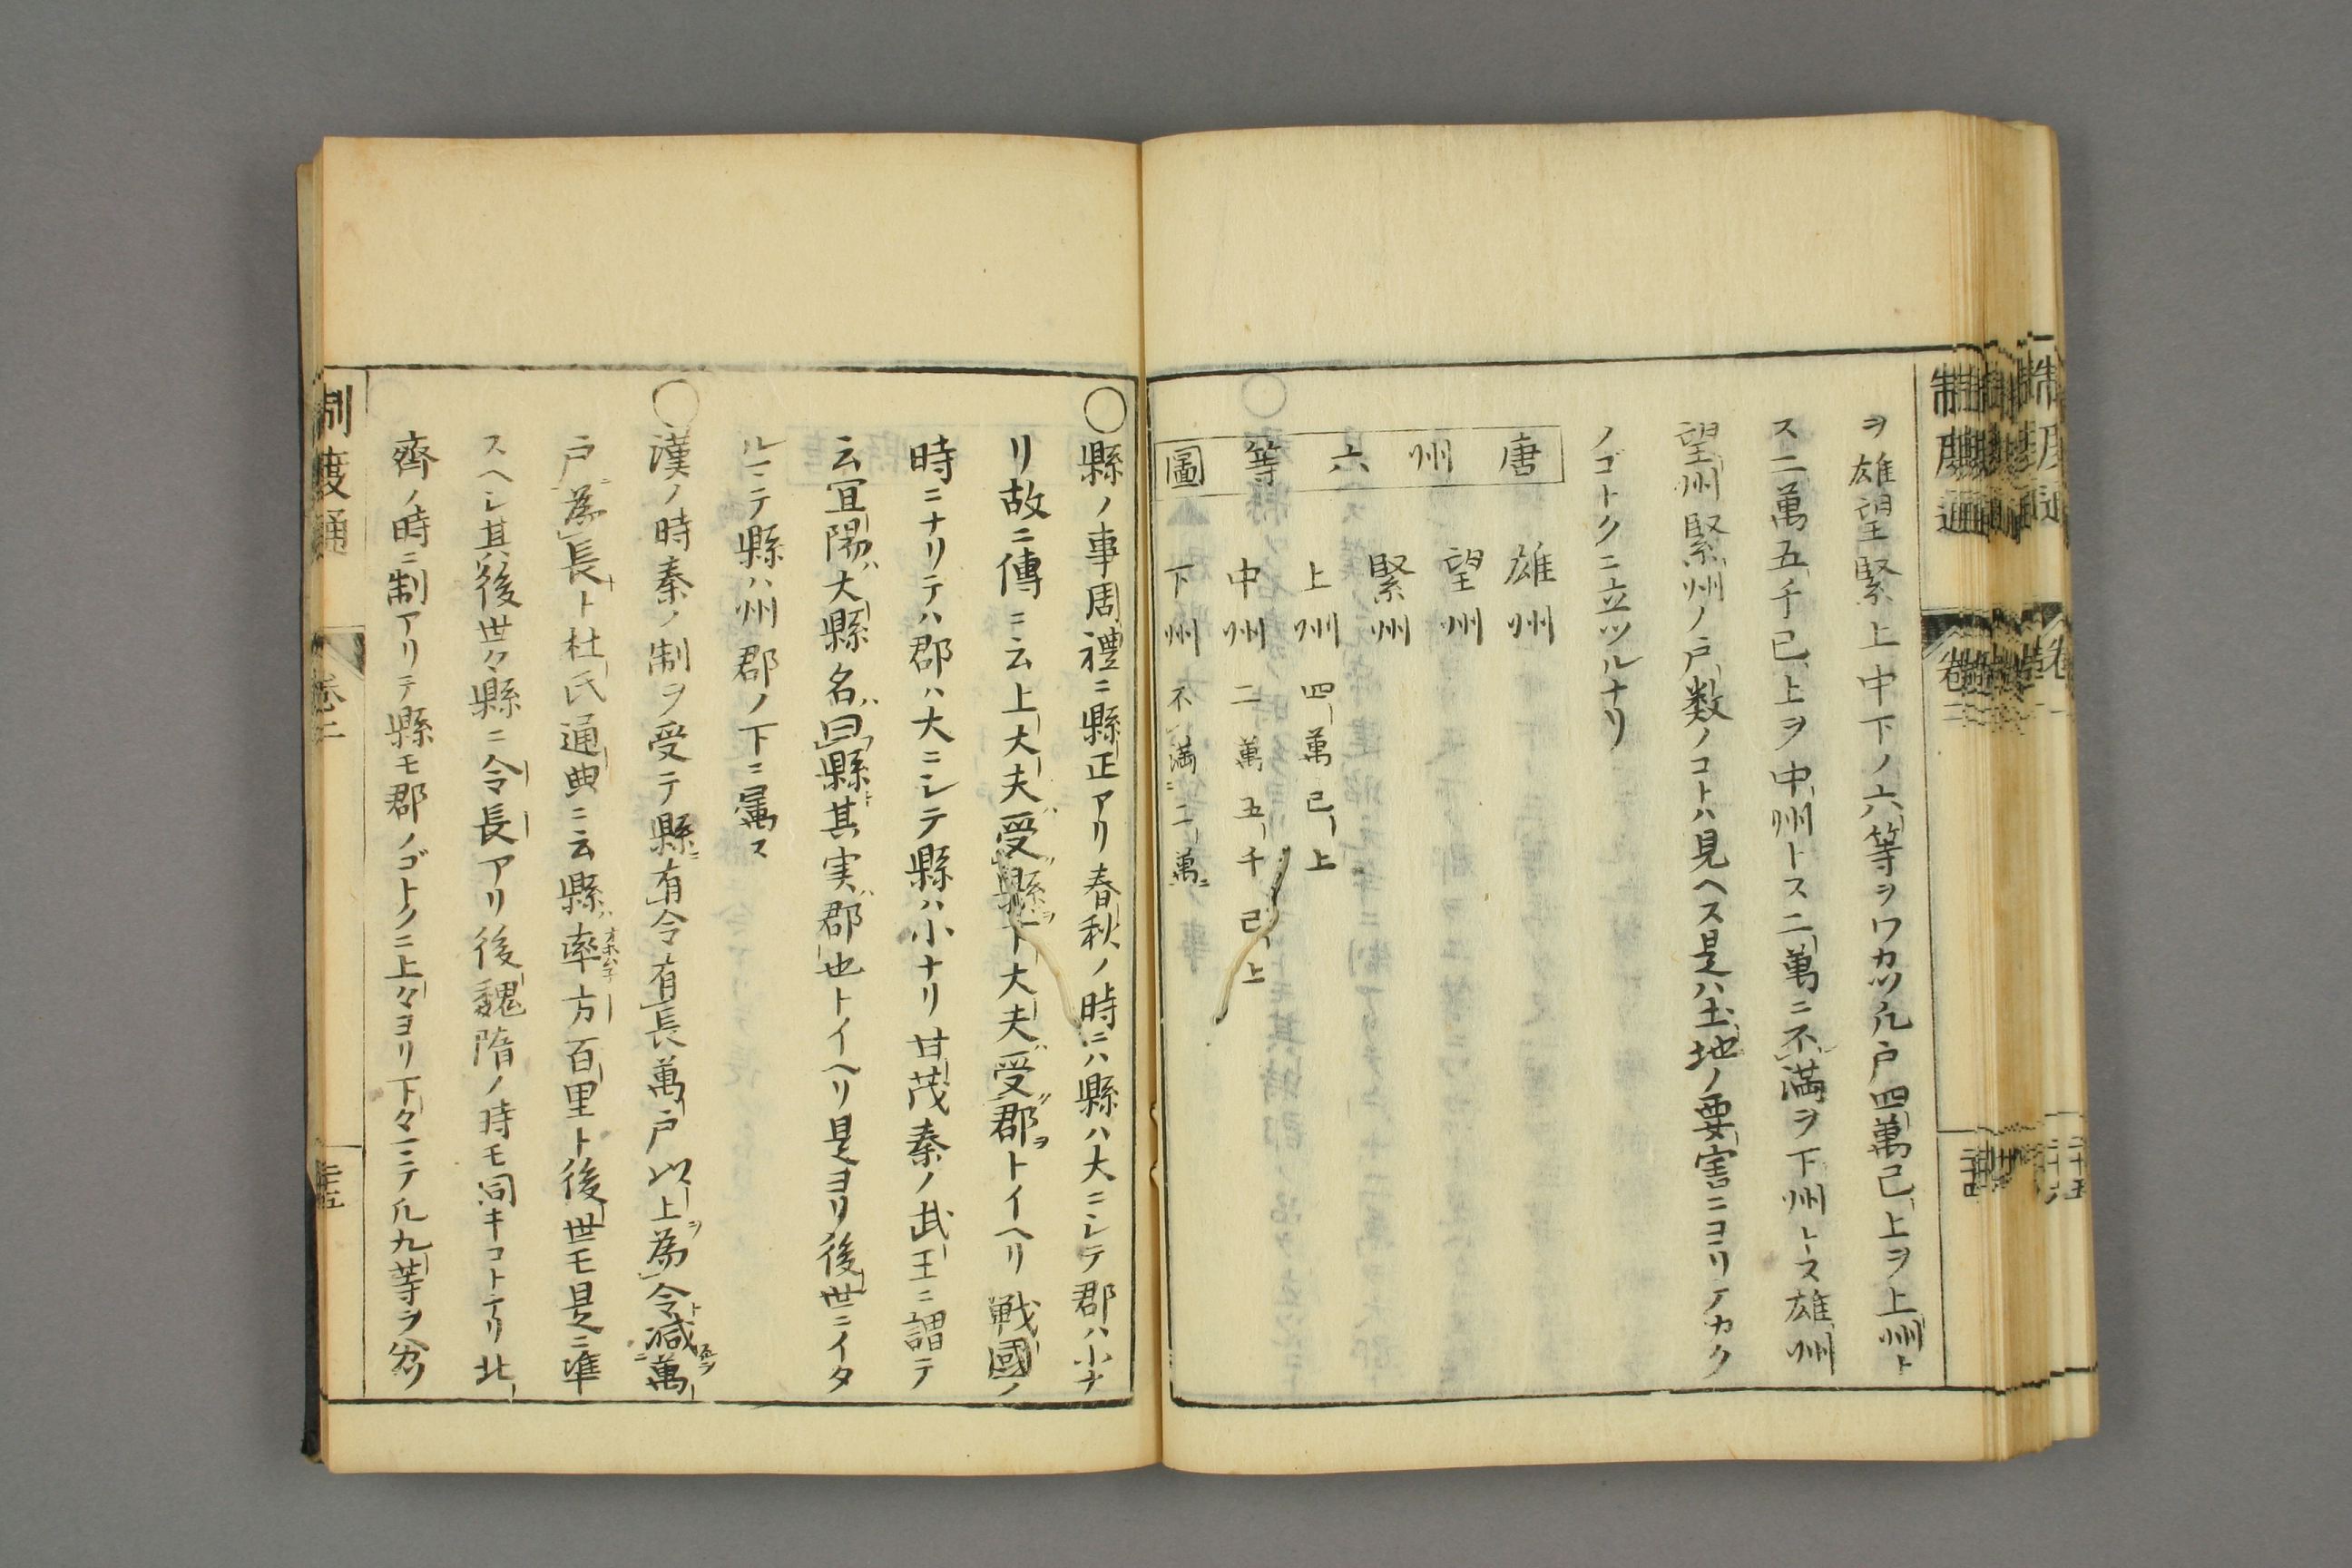 ヲ雄望緊上中下ノ六等ヲワカツ凡戸四萬已上ヲ上州ト
ス二萬五千已上ヲ中州トス二萬ニ不満ヲ下州トス雄州
望州緊州ノ戸数ノコトハ見ヘス是ハ土地ノ要害ニヨリテカク
ノゴトクニ立ツルナリ
唐州六等圖
雄州
望州
緊州
上州 四萬已上
中州 二萬五千已上
下州 不満二萬ニ
○縣ノ事周禮ニ縣正アリ春秋ノ時ニハ縣ハ大ニシテ郡ハ小ナ
リ故ニ傳ニ云上大夫ハ受縣ヲ下大夫ハ受郡ヲトイヘリ戦國ノ
時ニナリテハ郡ハ大ニシテ縣ハ小ナリ甘茂秦ノ武王ニ謂テ
云冝陽ハ大縣名ハ曰縣ト其実ハ郡也トイヘリ是ヨリ後世ニイタ
ルマテ縣ハ州郡ノ下ニ属ス
○漢ノ時秦ノ制ヲ受テ縣ニ有令有長萬戸以上ヲ為令ト減萬
戸ニ為長ト杜氏通典ニ云縣ハ率方百里ト後世モ是ニ準
スヘシ其後世々縣ニ令長アリ後魏隋ノ時モ同キコトナリ北
齊ノ時ニ制アリテ縣モ郡ノゴトクニ上々ヨリ下々マテ凡九等ヲ分ツ
制度通 卷二
制度通 卷二 二十四